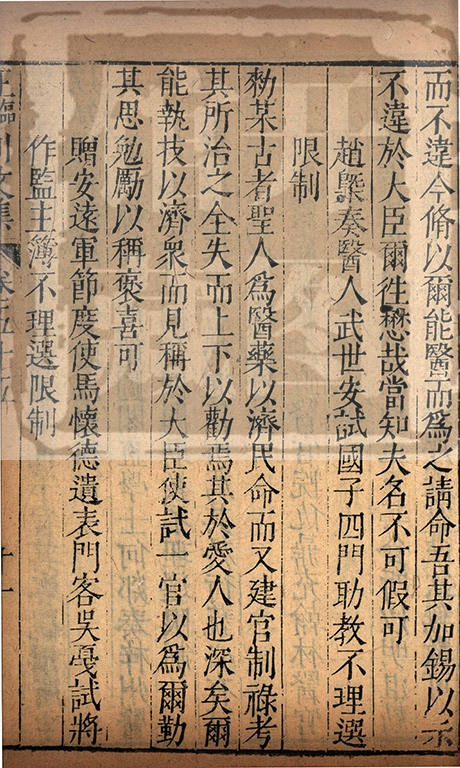 而不違今脩以爾能醫而爲之請命吾其加錫以示
不違於大臣爾徃懋哉當知夫名不可假可
趙槩奏醫人武世安試國子四門助教不理選
限制
勑某古者聖人爲醫藥以濟民命而又建官制祿考
其所治之全失而上下以勸焉其於愛人也深矣爾
能執技以濟衆而見稱於大臣使試一官以爲爾勤
其思勉勵以稱褒喜可
贈安遠軍節度使馬懷德遺表門客吳戞試將
作監主簿不理選限制
王臨川文集 卷五十五 十一